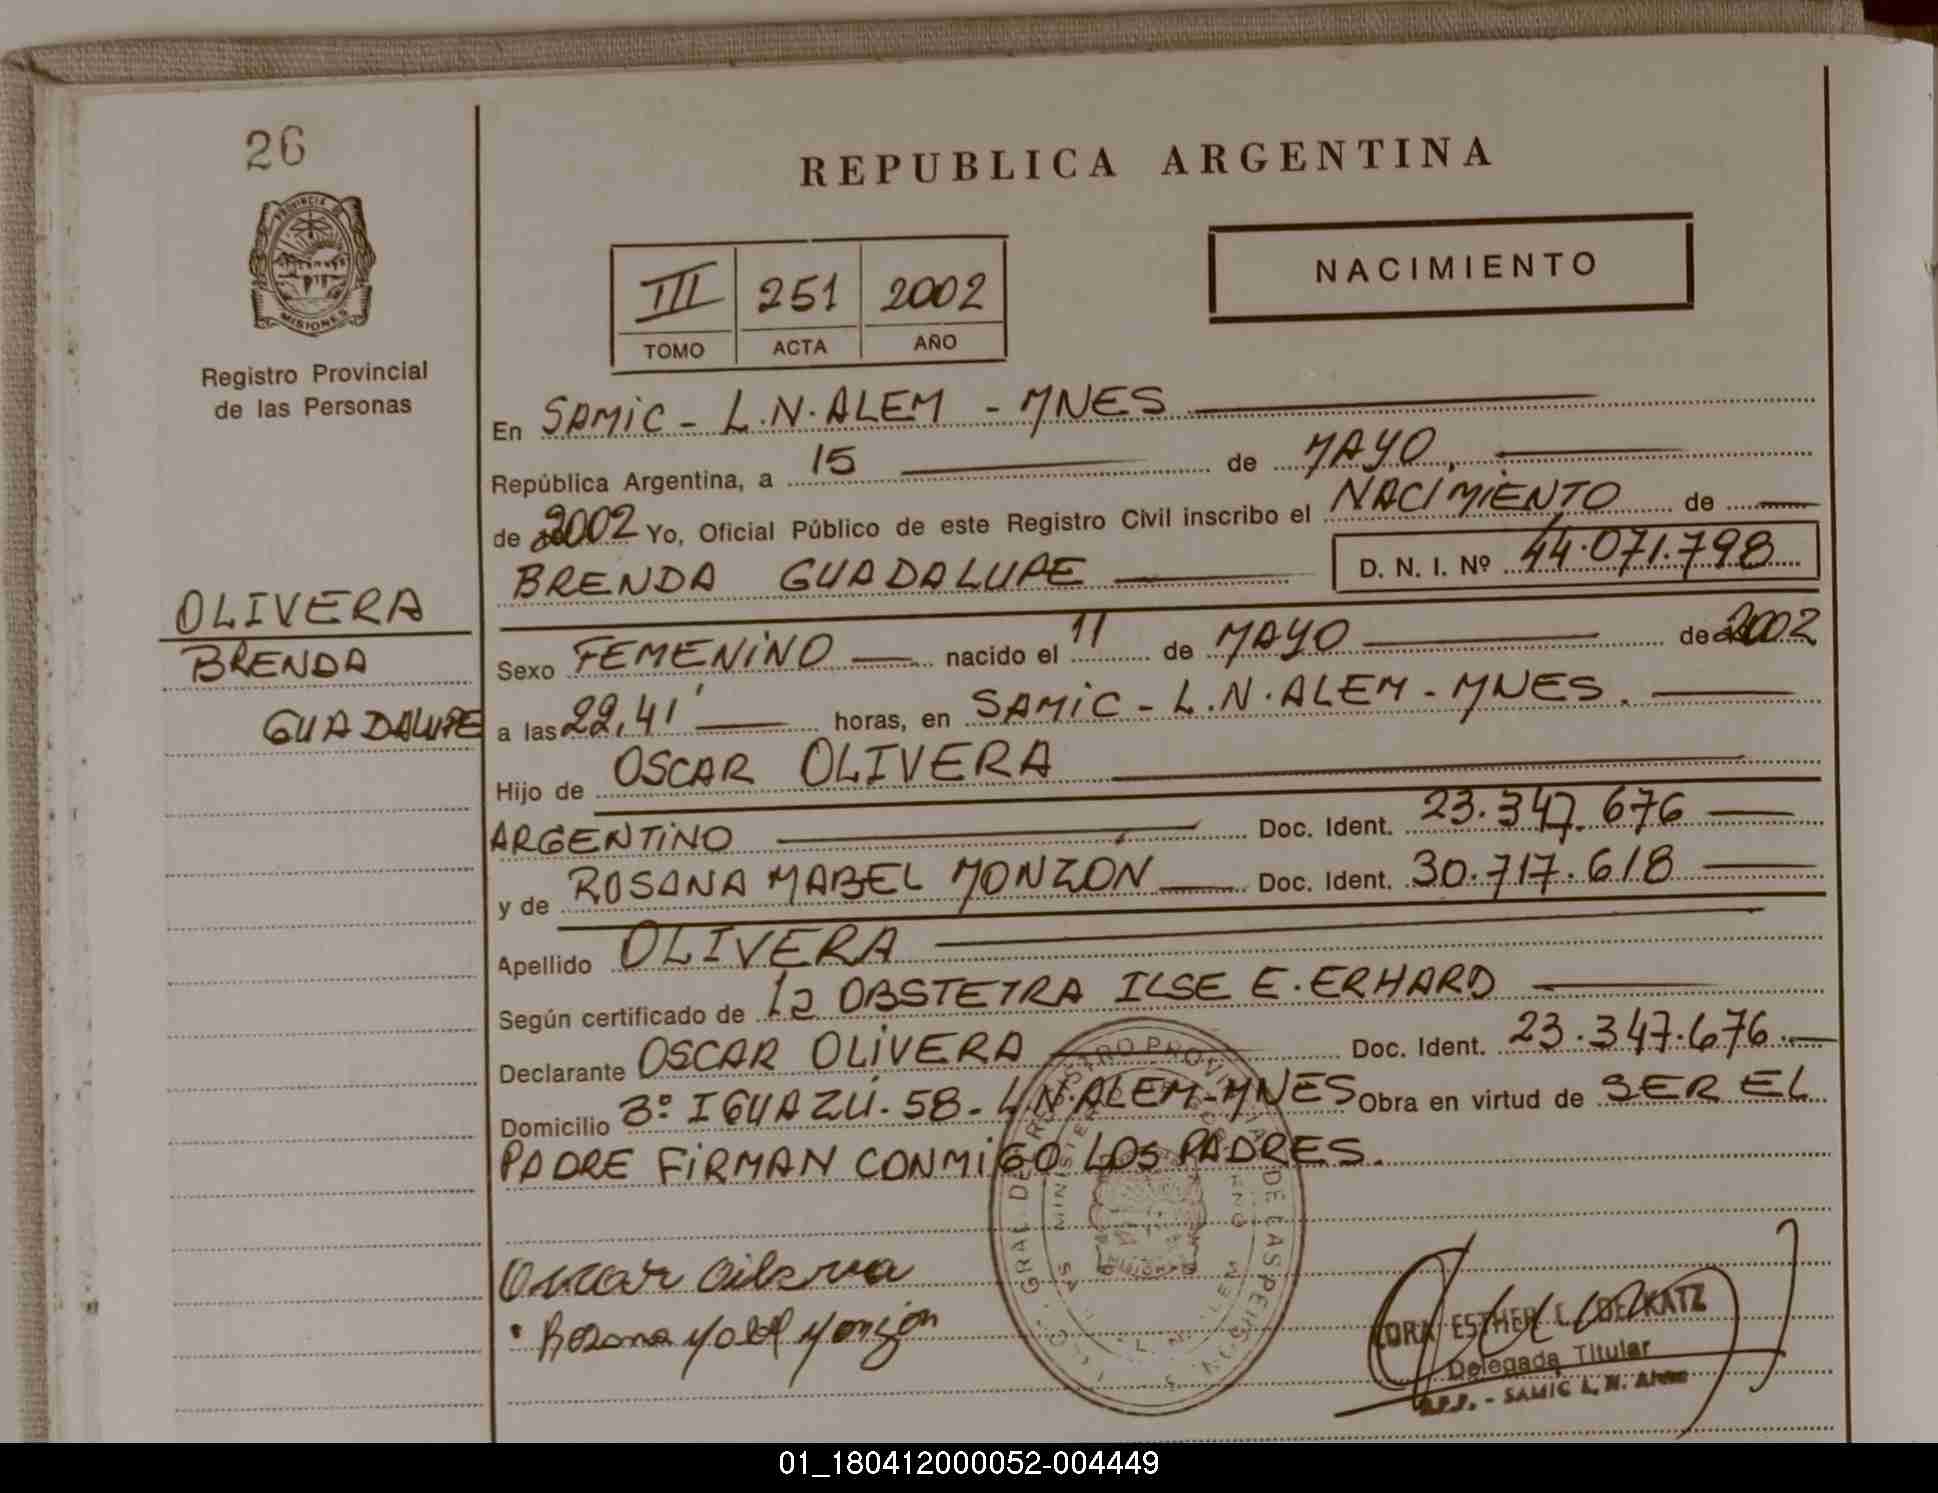 26
PROVINCIA DE
MISIONES
Registro Provincial
de las Personas
OLIVERA
BRENDA
GUADALUPE
REPUBLICA ARGENTINA
NACIMIENTO
III 251 2002
TOMO ACTA AÑO
En SAMIC - L.N. ALEM - MNES
República Argentina, a 15 de MAYO,
de 2002 Yo, Oficial Público de este Registro Civil inscribo el NACIMIENTO de
BRENDA GUADALUPE D. N. I. Nº 44.071.798
Sexo FEMENINO nacido el 11 de MAYO de 2002
a las 22,41' horas, en SAMIC - L.N. ALEM - MNES.
Hijo de OSCAR OLIVERA
ARGENTINO Doc. Ident. 23.347.676
y de ROSANA MABEL MONZON Doc. Ident. 30.717.618
Apellido OLIVERA
Según certificado de la OBSTETRA ILSE E. ERHARD
Declarante OSCAR OLIVERA Doc. Ident. 23.347.676.
Domicilio Bº IGUAZU. 58 - L.N. ALEM - MNES Obra en virtud de SER EL
PADRE FIRMAN CONMIGO LOS PADRES.
ESTHER DE KATZ
Delegada Titular
R.P.P. - SAMIC L. N. Alem
01_180412000052-004449